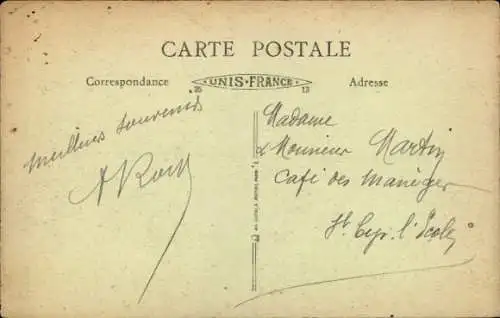 CARTE POSTALE
Correspondance
UNIS-FRANCE
Adresse
Meilleurs souvenirs
Madame
& Monsieur Martin
Café des Manèges
St Cyr l'École